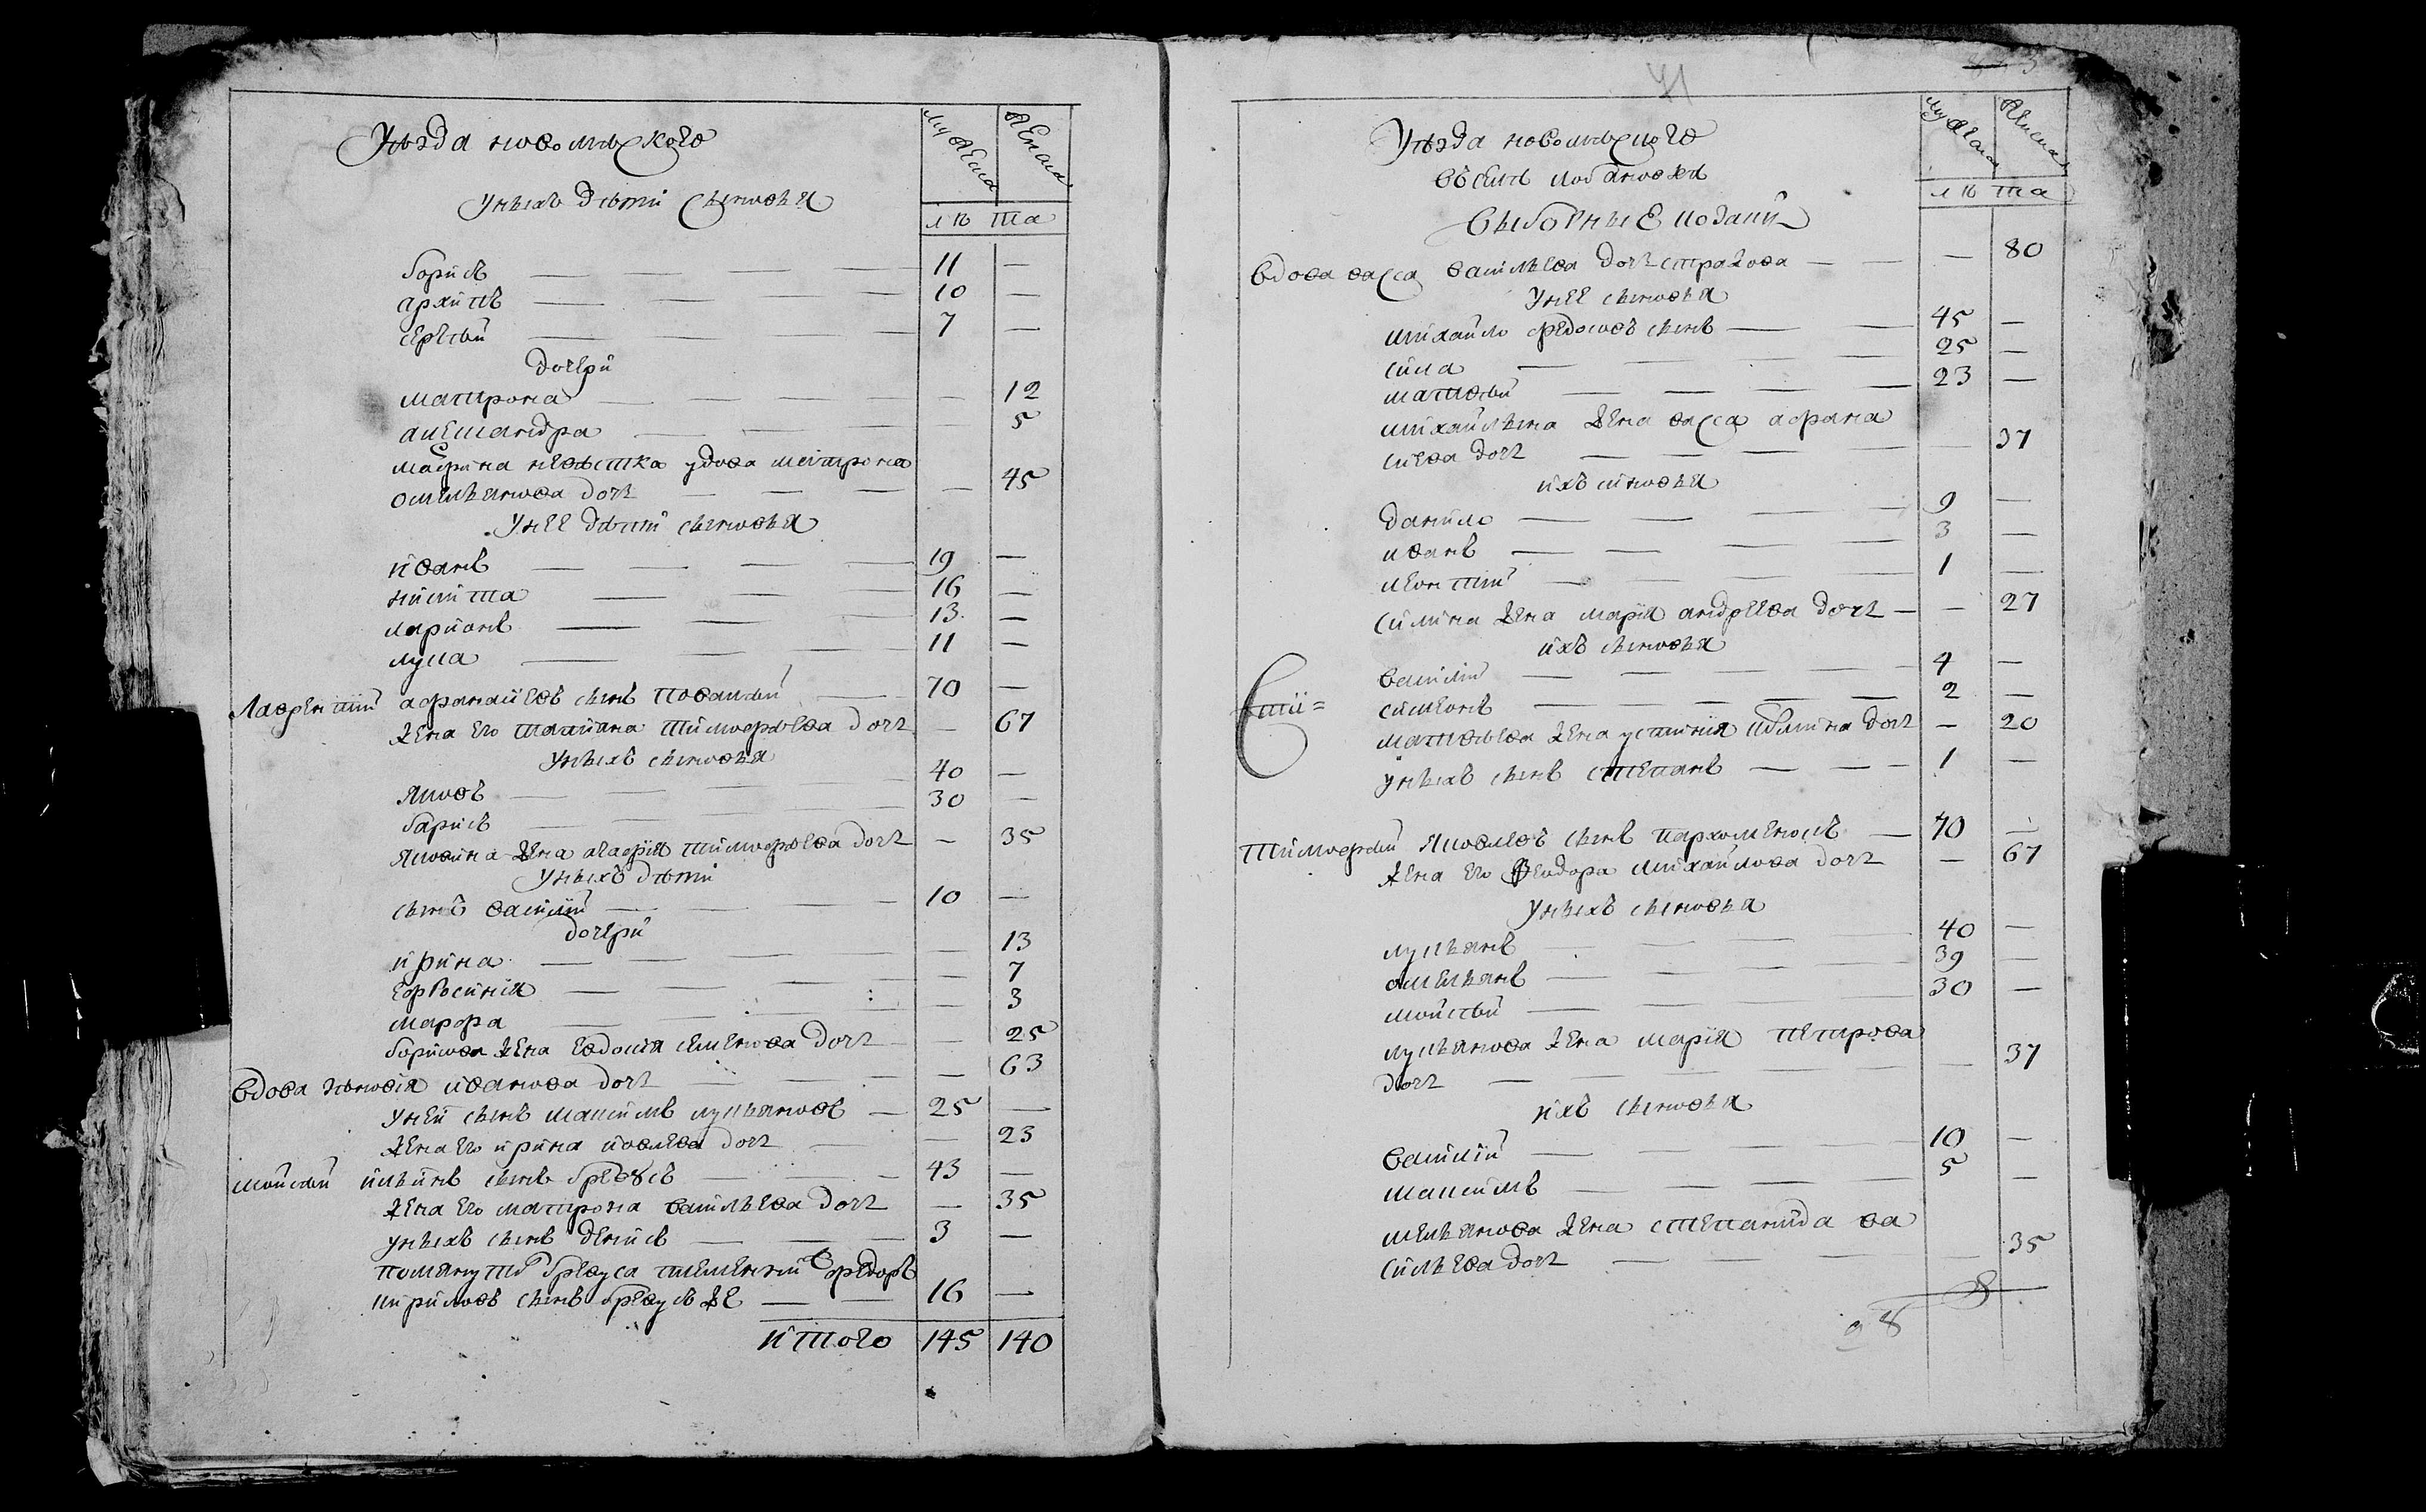 Уѣзда новомлѣского
мужеска
женска
лѣ та
Унихъ дѣти сыновья
борисъ — 11 —
архипъ — 10 —
сергѣй — 7 —
дочери
матрона — — 12
александра — 5
невѣстка удова матрона
омельянова дочь — — 45
Унее дѣти сыновья
иванъ — 19 —
никита — 16 —
ларионъ — 13 —
лука — 11 —
Лаврентий афанасиевъ сынъ — 70 —
жена его татияна тимофѣева дочь — 67
Унихъ сыновья
яковъ — 40 —
борисъ — 30 —
яковина жена агафия тимофѣева дочь — 35
Унихъ дѣти
сынъ василий — 10 —
дочери
ирина — — 13
ефросиния — — 7
марфа — — 3
борисова жена евдокия семенова дочь — 25
вдова зѣновия иванова дочь — — 63
Уней сынъ максимъ лукьяновъ — 25 —
жена его ирина яковлева дочь — 23
мойсѣй ильинъ сынъ бревусъ — 43 —
жена его матрона васильева дочь — 35
унихъ сынъ денисъ — 3 —
помянутого бревуса племенникъ федоръ
кириловъ сынъ бревусъ же — 16 —
итого 145 140
41
Уѣзда новомлѣского
мужеска
женска
лѣ та
въселѣ лобановки
выборные козаки
вдова васса василѣева дочь страхова — — 80
Унее сыновья
михайло федоровъ сынъ — 45 —
сила — 25 —
матвѣй — 23 —
михайлѣна жена васса афана
сиева дочь — — 37
ихъ синовья
данило — 9 —
иванъ — 3 —
леонтий — 1 —
силина жена мария андреева дочь — — 27
ихъ сыновья
василий — 4 —
симеонъ — 2 —
матвѣева жена устиния дочь — 20
унихъ сынъ степанъ — 1 —
Тимофѣй яковлевъ сынъ пархоменокъ — 70 —
жена его феодора михайлова дочь — 67
Унихъ сыновья
лукьянъ — 40 —
омельянъ — 39 —
мойсѣй — 30 —
лукьянова жена мария петрова
дочь — — 37
ихъ сыновья
василий — 10 —
максимъ — 5 —
мельянова жена степанида ва
сильева дочь — — 35